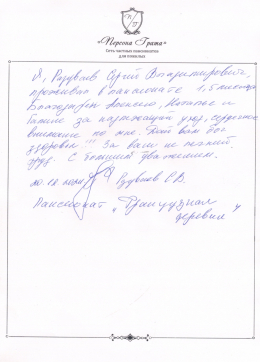 «Персона Грата»
Сеть частных пансионатов
для пожилых
Я, Сергей Владимирович,
проживал в пансионате 1,5 месяца
Благодарен Наталье и
Галине за надлежащий уход, сердечное
внимание ко мне. Дай вам бог
здоровья!!! За ваш не легкий
труд. С большим уважением.
С.В.
Пансионат „Французская
деревня"